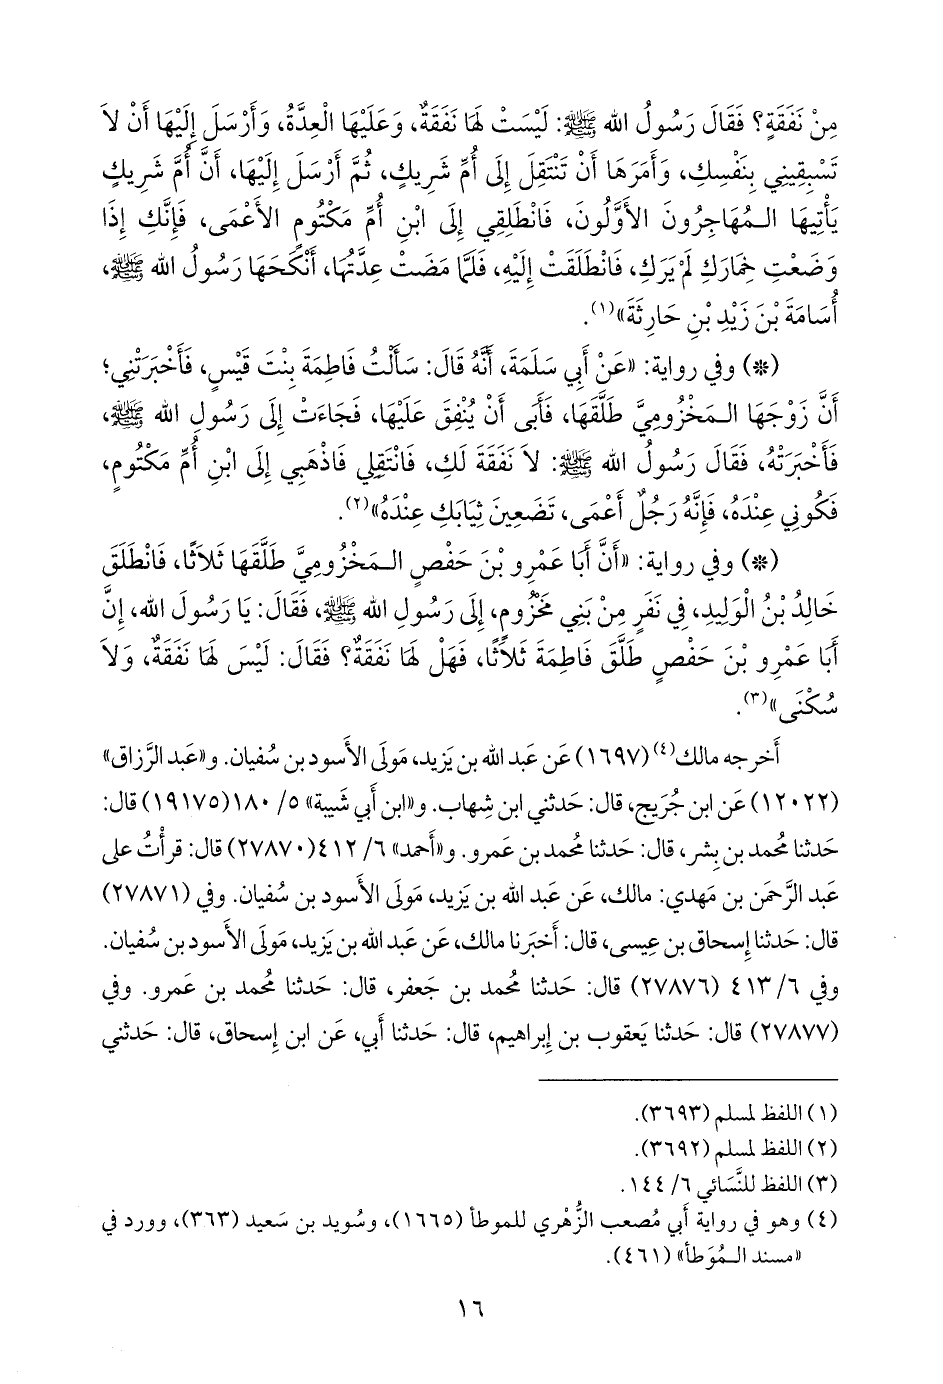 مِنْ نَفَقَةٍ؟ فَقَالَ رَسُولُ الله ﷺ: لَيْسَتْ لَهَا نَفَقَةٌ، وَعَلَيْهَا الْعِدَّةُ، وَأَرْسَلَ إِلَيْهَا أَنْ لَا
تَسْبِقِينِي بِنَفْسِكِ، وَأَمَرَهَا أَنْ تَنْتَقِلَ إِلَى أُمِّ شَرِيكٍ، ثُمَّ أَرْسَلَ إِلَيْهَا، أَنَّ أُمَّ شَرِيكٍ
يَأْتِيهَا الـمُهَاجِرُونَ الأَوَّلُونَ، فَانْطَلِقِي إِلَى ابْنِ أُمِّ مَكْتُومٍ الأَعْمَى، فَإِنَّكِ إِذَا
وَضَعْتِ خِمَارَكِ لَمْ يَرَكِ، فَانْطَلَقَتْ إِلَيْهِ، فَلَمَّا مَضَتْ عِدَّتُهَا، أَنْكَحَهَا رَسُولُ الله ﷺ،
أُسَامَةَ بْنَ زَيْدِ بْنِ حَارِثَةَ»(١).
(*) وفي رواية: «عَنْ أَبِي سَلَمَةَ، أَنَّهُ قَالَ: سَأَلْتُ فَاطِمَةَ بِنْتَ قَيْسٍ، فَأَخْبَرَتْنِي؛
أَنَّ زَوْجَهَا الـمَخْزُومِيَّ طَلَّقَهَا، فَأَبَى أَنْ يُنْفِقَ عَلَيْهَا، فَجَاءَتْ إِلَى رَسُولِ الله ﷺ،
فَأَخْبَرَتْهُ، فَقَالَ رَسُولُ الله ﷺ: لَا نَفَقَةَ لَكِ، فَانْتَقِلِي فَاذْهَبِي إِلَى ابْنِ أُمِّ مَكْتُومٍ،
فَكُونِي عِنْدَهُ، فَإِنَّهُ رَجُلٌ أَعْمَى، تَضَعِينَ ثِيَابَكِ عِنْدَهُ»(٢).
(*) وفي رواية: «أَنَّ أَبَا عَمْرِو بْنَ حَفْصٍ الـمَخْزُومِيَّ طَلَّقَهَا ثَلَاثًا، فَانْطَلَقَ
خَالِدُ بْنُ الْوَلِيدِ، فِي نَفَرٍ مِنْ بَنِي مَخْزُومٍ، إِلَى رَسُولِ الله ﷺ، فَقَالَ: يَا رَسُولَ الله، إِنَّ
أَبَا عَمْرِو بْنَ حَفْصٍ طَلَّقَ فَاطِمَةَ ثَلَاثًا، فَهَلْ لَهَا نَفَقَةٌ؟ فَقَالَ: لَيْسَ لَهَا نَفَقَةٌ، وَلَا
سُكْنَى»(٣).
أَخرجه مالك(٤) (١٦٩٧) عَن عَبد الله بن يَزيد، مَولَى الأَسود بن سُفيان. و«عَبد الرَّزاق»
(١٢٠٢٢) عَن ابن جُرَيج، قال: حَدثني ابن شِهاب. و«ابن أَبي شَيبة» ٥/ ١٨٠(١٩١٧٥) قال:
حَدثنا مُحمد بن بِشر، قال: حَدثنا مُحمد بن عَمرو. و«أَحمد» ٦/ ٤١٢(٢٧٨٧٠) قال: قرأْتُ على
عَبد الرَّحمَن بن مَهدي: مالك، عَن عَبد الله بن يَزيد، مَولَى الأَسود بن سُفيان. وفي (٢٧٨٧١)
قال: حَدثنا إِسحاق بن عِيسى، قال: أَخبَرنا مالك، عَن عَبد الله بن يَزيد، مَولَى الأَسود بن سُفيان.
وفي ٦/ ٤١٣ (٢٧٨٧٦) قال: حَدثنا مُحمد بن جَعفر، قال: حَدثنا مُحمد بن عَمرو. وفي
(٢٧٨٧٧) قال: حَدثنا يَعقوب بن إِبراهيم، قال: حَدثنا أَبي، عَن ابن إِسحاق، قال: حَدثني
(١) اللفظ لمسلم (٣٦٩٣).
(٢) اللفظ لمسلم (٣٦٩٢).
(٣) اللفظ للنَّسَائي ٦/ ١٤٤.
(٤) وهو في رواية أَبي مُصعب الزُّهْري للموطأ (١٦٦٥)، وسُويد بن سَعيد (٣٦٣)، وورد في
«مسند الـمُوَطأ» (٤٦١).
١٦